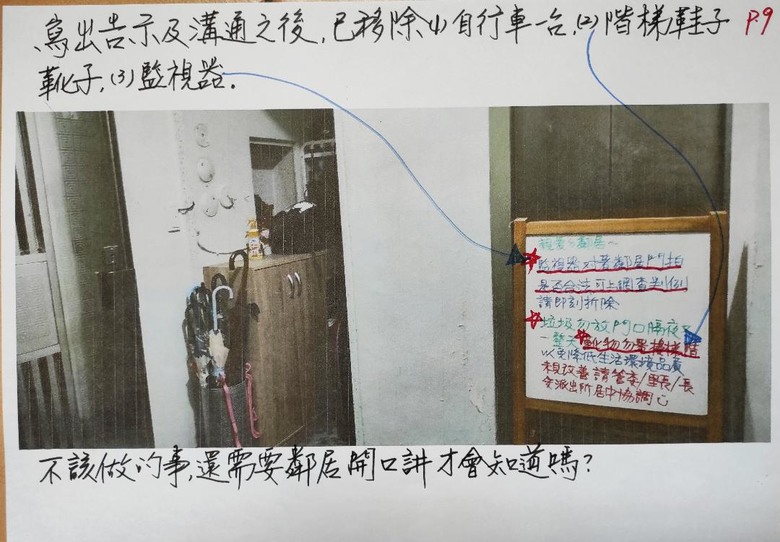 寫出告示及溝通之後,已移除(1)自行車一台,(2)階梯鞋子 P.9
靴子,(3)監視器。
親愛的鄰居~
監視器對著鄰居門拍
是否合法可上網查判例
請即刻拆除
垃圾勿放門口隔夜
一整天 勿
以免降低生活環境品質
想改善請管委/里長/長
安派出所居中協調
不該做的事,還需要鄰居開口講才會知道嗎?